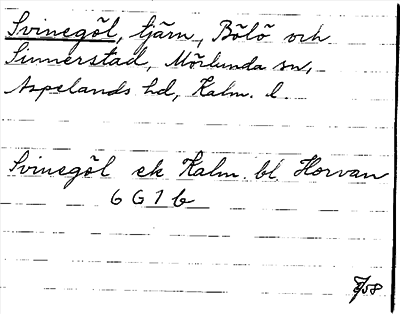 Svinegöl, tjärn, Bölö och
Sinnerstad, Mörlunda sn,
Aspelands hd, Kalm. l.
Svinegöl ek Kalm. bl. Horvan
6 G 7 b